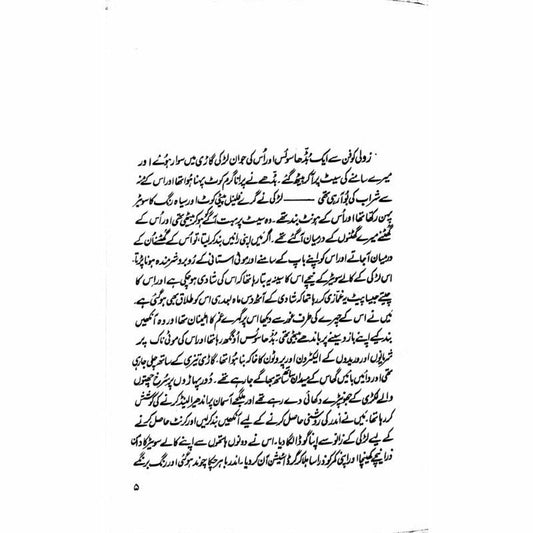 زولی کوفن سے ایک بڈھا سوئس اور اُس کی جوان لڑکی گاڑی میں سوار ہوئے اور
میرے سامنے کی سیٹ پر آ کر بیٹھ گئے۔ بڈھے نے پرانا گرم کوٹ پہنا ہوا تھا اور اس کے مُنہ
سے شراب کی بُو آ رہی تھی ——— لڑکی نے گرے فلینل پیٹی کوٹ اور سیاہ رنگ کا سویٹر
پہن رکھا تھا اور اُس کے ہونٹ بند تھے۔ وہ سیٹ پر بہت آگے ہو کر بیٹھی تھی اور اُس کے
گھٹنے میرے گھٹنوں کے درمیان آ گئے تھے۔ اگر میں اپنی رانیں بند کر لیتا، تو اُس کے گھٹنے اُن کے
درمیان آ جاتے اور اس کو اپنے باپ کے سامنے اور موٹی استانی کے رُوبرو شرمندہ ہونا پڑتا۔
اس لڑکی کے کالے سویٹر کے نیچے اس کا سینہ یہ بتا رہا تھا کہ اس کی شادی ہو چکی ہے اور اس کا
چیتے جیسا پیٹ یہ غمازی کر رہا تھا کہ شادی کے آٹھ دس ماہ بعد ہی اس کو طلاق بھی ہو گئی ہے۔
میں نے اس کے چہرے کی طرف غور سے دیکھا اس پر گہرے غم کا اطمینان تھا اور وہ آنکھیں
بند کیے اپنے بازو سینے پر باندھے بیٹھی تھی۔ بُڈھا سوئس اُونگھ رہا تھا اور اس کی موٹی ناک پر
شریانوں اور وریدوں کے الیکٹرون اور پروٹون کا خاکہ بنا ہوا تھا۔ گاڑی تیزی سے چلی جا رہی
تھی اور دائیں بائیں گھاس کے میدان ساتھ ساتھ بھاگے جا رہے تھے۔ دُور پہاڑوں پر سُرخ چھتوں
والے لکڑی کے جھونپڑے دکھائی دے رہے تھے اور ملگجا آسمان پر اندھیرا لینڈ کرنے کی کوشش
کر رہا تھا۔ میں نے اندر کی روشنی حاصل کرنے کے لیے آنکھیں بند کر لیں اور کرنٹ حاصل کرنے
کے لیے لڑکی کے زانو سے اپنا گوڈا لگا دیا۔ اس نے دونوں ہاتھوں سے اپنے کالے سویٹر کا دامن
ذرا نیچے کھینچا اور اپنی کمر کو ذرا سا ہلا کر گرڈ اسٹیشن آن کر دیا۔ اندر باہر چکا چوند ہو گئی اور رنگ برنگے
۵